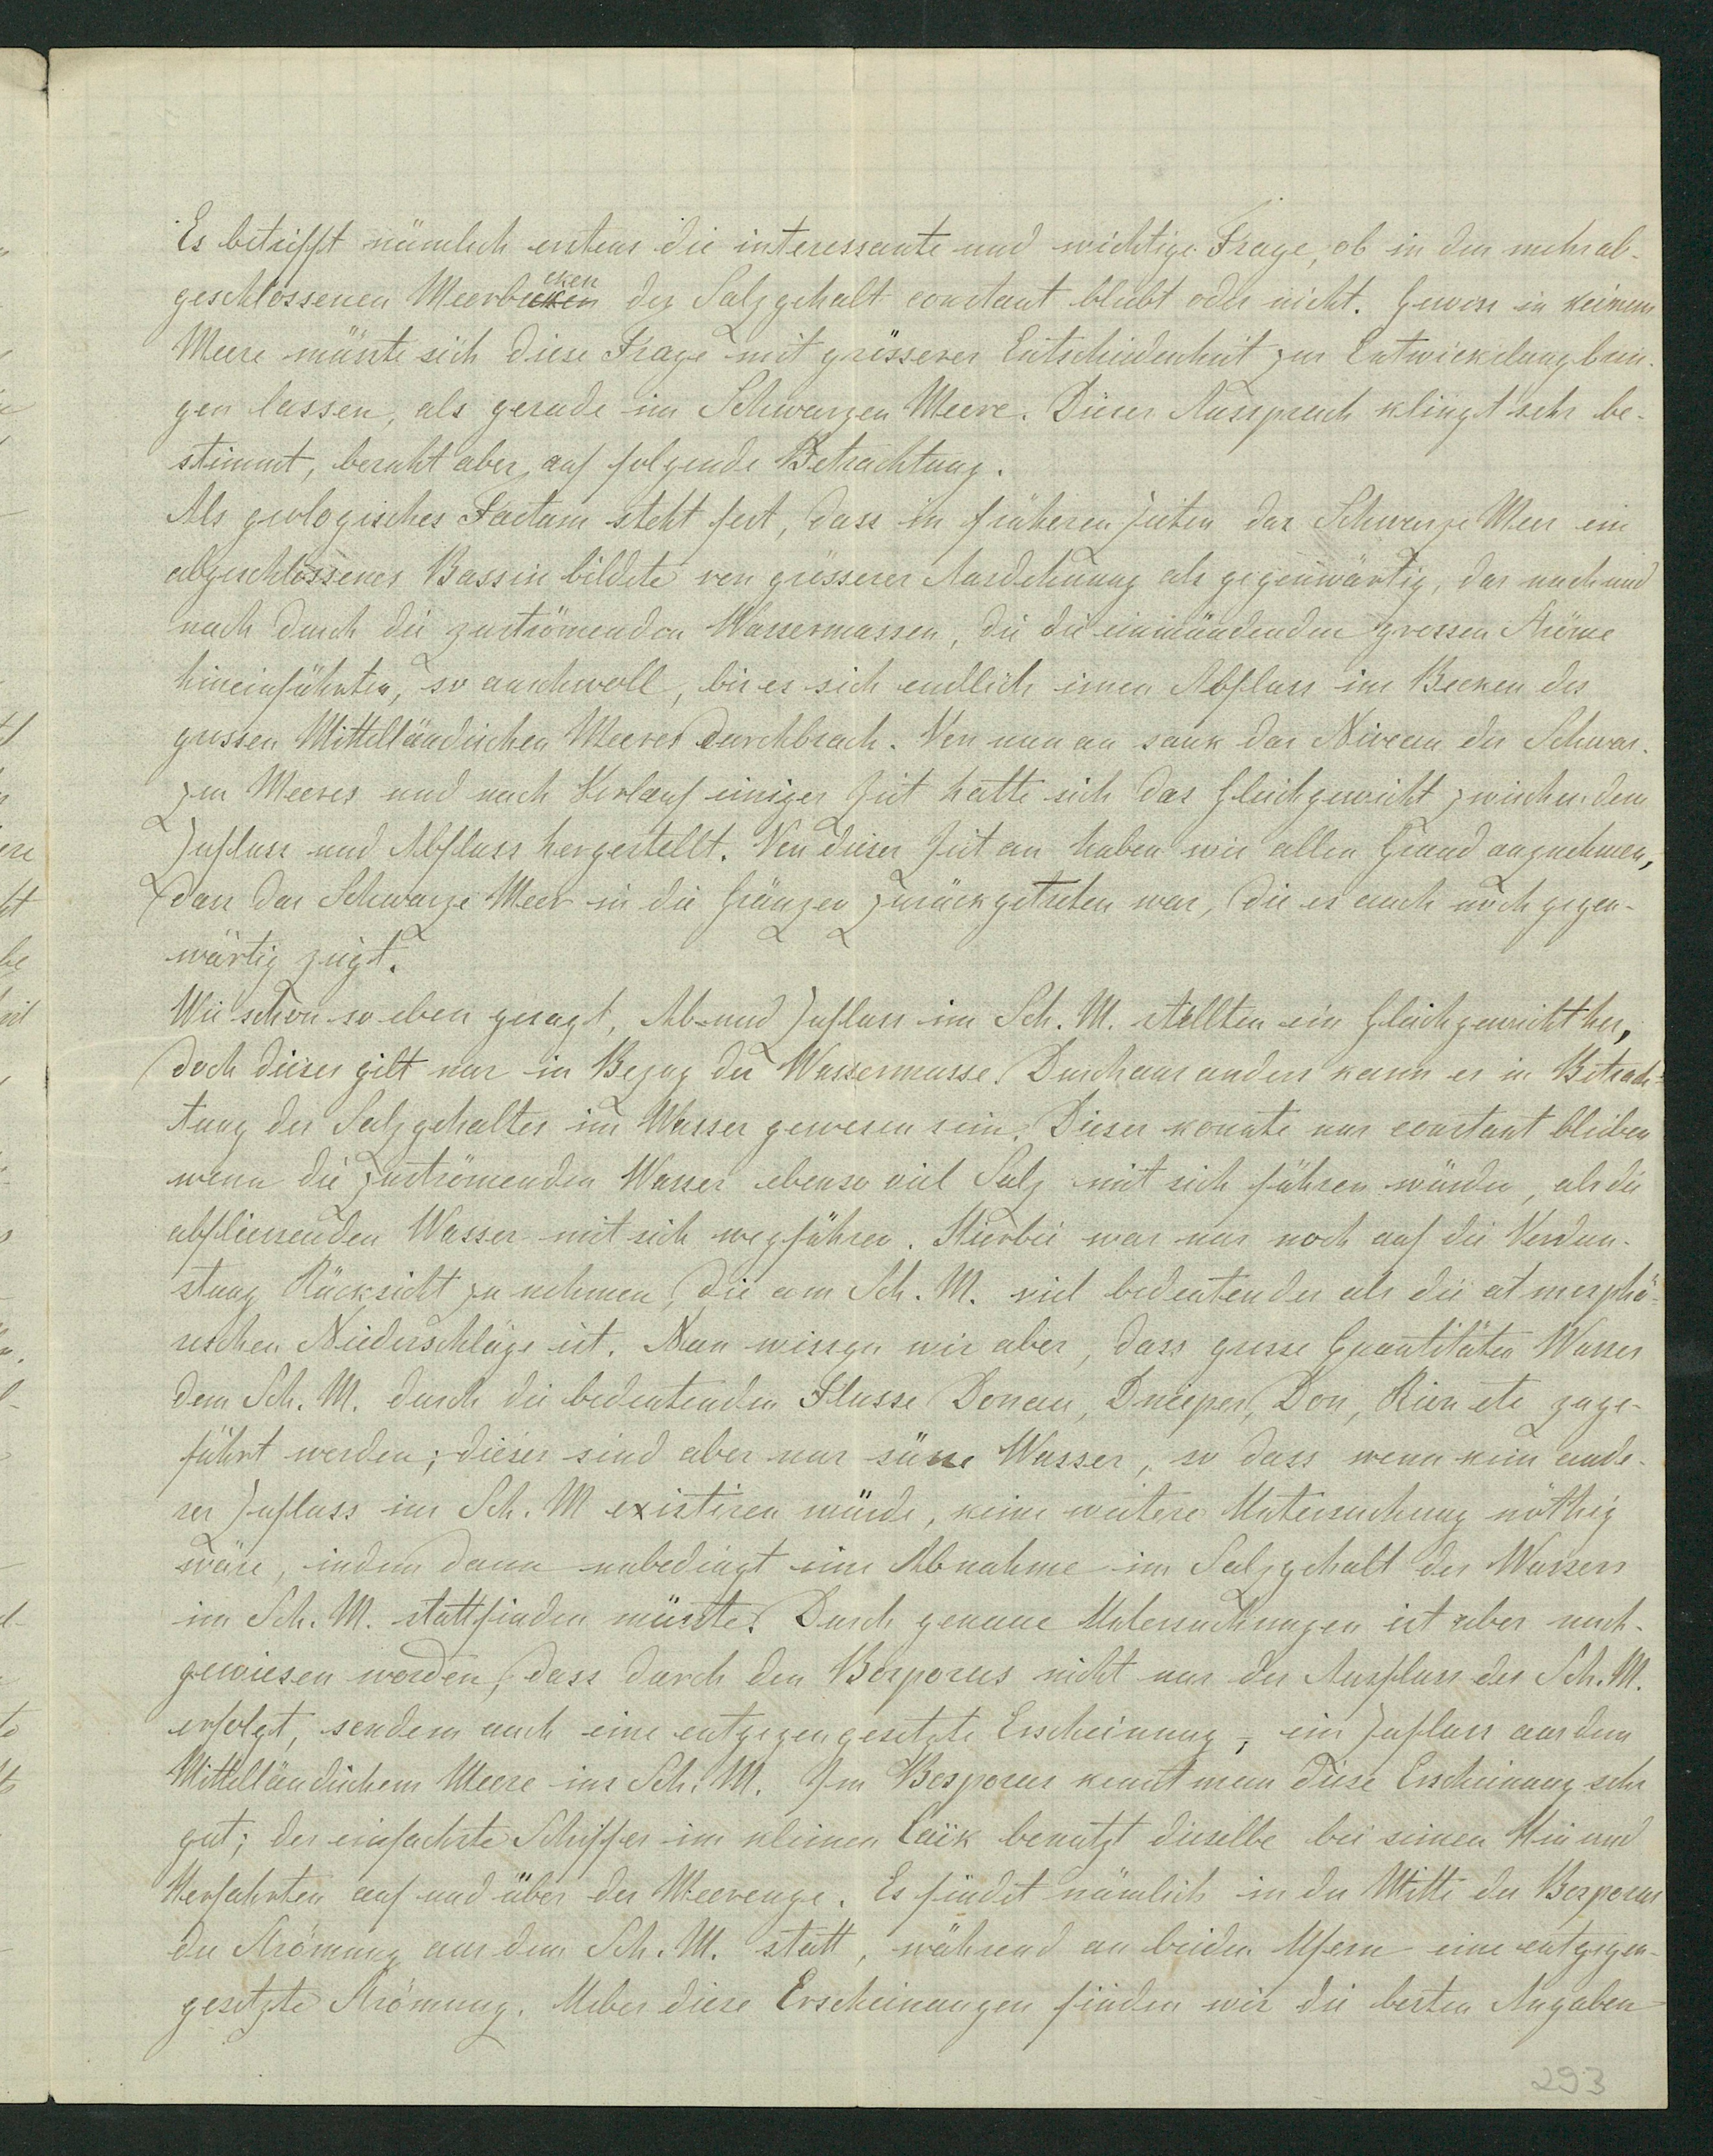 Es betrifft nämlich erstens die interessante und wichtige Frage, ob in den mehr ab-
geschlossenen Meerbecken der Salzgehalt constant bleibt oder nicht. Gewiss in keinem
Meere müsste sich diese Frage mit grösserer Entschiedenheit zur Entwickelung brin-
gen lassen, als gerade im Schwarzen Meere. Dieser Ausspruch klingt sehr be-
stimmt, beruht aber auf folgende Betrachtung.
Als geologisches Factum steht fest, dass in früheren Zeiten das Schwarze Meer ein
abgeschlossenes Bassin bildete von grösserer Ausdehnung als gegenwärtig, das nach und
nach durch die zuströmenden Wassermassen, die die einmündenden grossen Ströme
hineinführten, so anschwoll, bis es sich endlich einen Abfluss im Becken des
grossen Mittelländischen Meeres durchbrach. Von nun an sank das Niveau des Schwar-
zen Meeres und nach Verlauf einiger Zeit hatte sich das Gleichgewicht zwischen dem
Zufluss und Abfluss hergestellt. Von dieser Zeit an haben wir allen Grund anzunehmen,
dass das Schwarze Meer in die Gränzen zurückgetreten war, die es auch noch gegen-
wärtig zeigt.
Wie schon so eben gesagt, Ab- und Zufluss im Sch. M. stellten ein Gleichgewicht her,
doch dieses gilt nur in Bezug der Wassermasse. Durchaus anders kann es in Betrach-
tung des Salzgehaltes im Wasser gewesen sein. Dieser konnte nur constant bleiben
wenn die zuströmenden Wasser ebenso viel Salz mit sich führen würden, als die
abfliessenden Wasser mit sich wegführen. Hierbei war nur noch auf die Verdun-
stung Rücksicht zu nehmen, die am Sch. M. viel bedeutender als die atmosphä-
rischen Niederschläge ist. Nun wissen wir aber, dass grosse Quantitäten Wasser
dem Sch. M. durch die bedeutenden Flusse Donau, Dneeper, Don, Rion etc zuge-
führt werden; dieses sind aber nur süsse Wasser, so dass wenn kein ande-
rer Zufluss im Sch. M existiren würde, keine weitere Untersuchung nöthig
wäre, indem dann unbedingt eine Abnahme im Salzgehalt des Wassers
im Sch. M. stattfinden müsste. Durch genaue Untersuchungen ist aber nach-
gewiesen worden, dass durch den Bosporus nicht nur der Ausfluss des Sch. M.
erfolgt, sondern auch eine entgegengesetzte Erscheinung, ein Zufluss aus dem
Mittelländischem Meere ins Sch. M. Im Bosporus kennt man diese Erscheinung sehr
gut; der einfachste Schiffer im kleinen Caïk benutzt dieselbe bei seinen Hin und
Herfahrten auf und über der Meerenge. Es findet nämlich in der Mitte des Bosporus
die Strömung aus dem Sch. M. statt, während an beiden Ufern eine entgegen-
gesetzte Strömung. Ueber diese Erscheinungen finden wir die besten Angaben
293